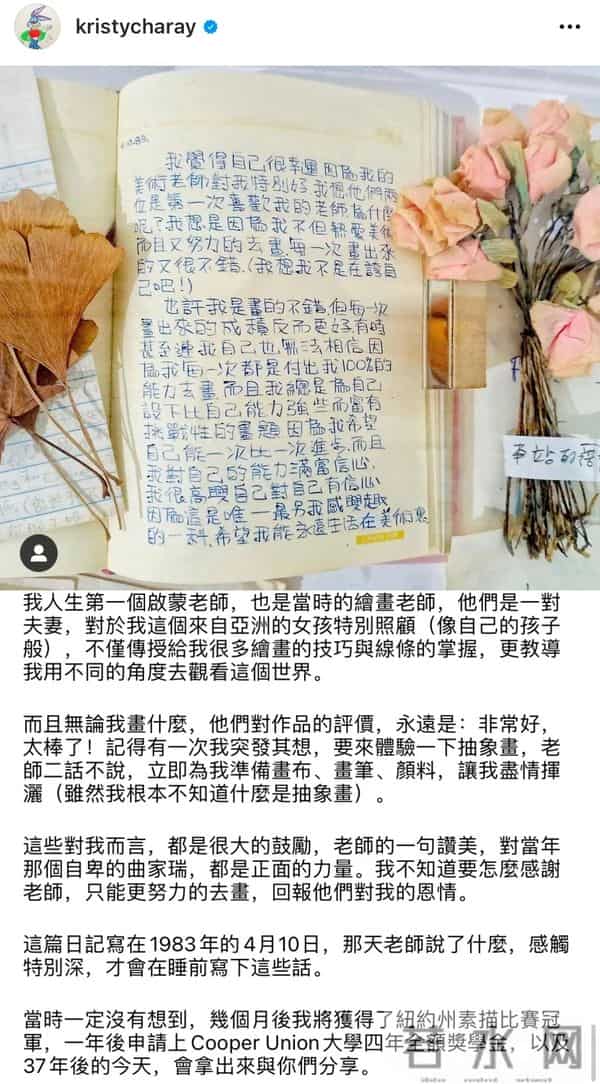 kristycharay
我覺得自己很幸運因為我的
美術老師對我特別好我想他們兩
位是第一次喜歡我的老師為什麼
呢?我想是因為我不但熱愛美術
而且又努力的去畫每一次畫出來
的又很不錯.(我想我不是在誇自
己吧!)
也許我是畫的不錯但每一次
畫出來的成積反而更好有時
甚至連我自己也無法相信因
為我每一次都是付出我100%的
能力去畫而且我總是為自己
設下比自己能力強些而富有
挑戰性的畫題因為我希望
自己能一次比一次進步而且
我對自己的能力滿富信心.
我很高興自己對自己有信心
因為這是唯一最另我感興趣
的一科.希望我能永遠生活在美術裏
車站的
我人生第一個啟蒙老師，也是當時的繪畫老師，他們是一對
夫妻，對於我這個來自亞洲的女孩特別照顧（像自己的孩子
般），不僅傳授給我很多繪畫的技巧與線條的掌握，更教導
我用不同的角度去觀看這個世界。
而且無論我畫什麼，他們對作品的評價，永遠是：非常好，
太棒了！記得有一次我突發其想，要來體驗一下抽象畫，老
師二話不說，立即為我準備畫布、畫筆、顏料，讓我盡情揮
灑（雖然我根本不知道什麼是抽象畫）。
這些對我而言，都是很大的鼓勵，老師的一句讚美，對當年
那個自卑的曲家瑞，都是正面的力量。我不知道要怎麼感謝
老師，只能更努力的去畫，回報他們對我的恩情。
這篇日記寫在1983年的4月10日，那天老師說了什麼，感觸
特別深，才會在睡前寫下這些話。
當時一定沒有想到，幾個月後我將獲得了紐約州素描比賽冠
軍，一年後申請上Cooper Union大學四年全額獎學金，以及
37年後的今天，會拿出來與你們分享。
若水网